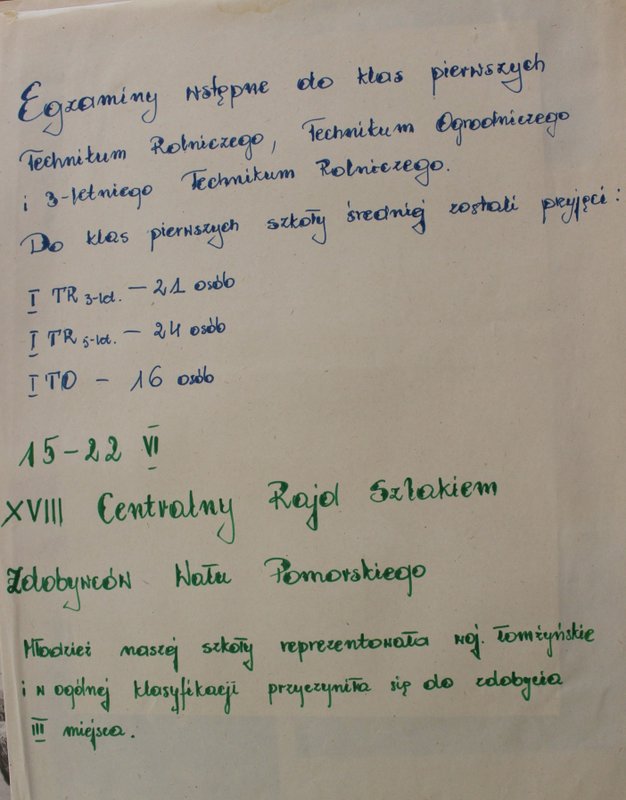 Egzaminy wstępne do klas pierwszych
Technikum Rolniczego, Technikum Ogrodniczego
i 3-letniego Technikum Rolniczego.
Do klas pierwszych szkoły średniej zostali przyjęci:
I TR 3-let. - 21 osób
I TR 5-let. - 24 osób
I TO - 16 osób
15-22 VI
XVIII Centralny Rajd Szlakiem
Zdobywców Wału Pomorskiego
Młodzież naszej szkoły reprezentowała woj. łomżyńskie
i w ogólnej klasyfikacji przyczyniła się do zdobycia
III miejsca.